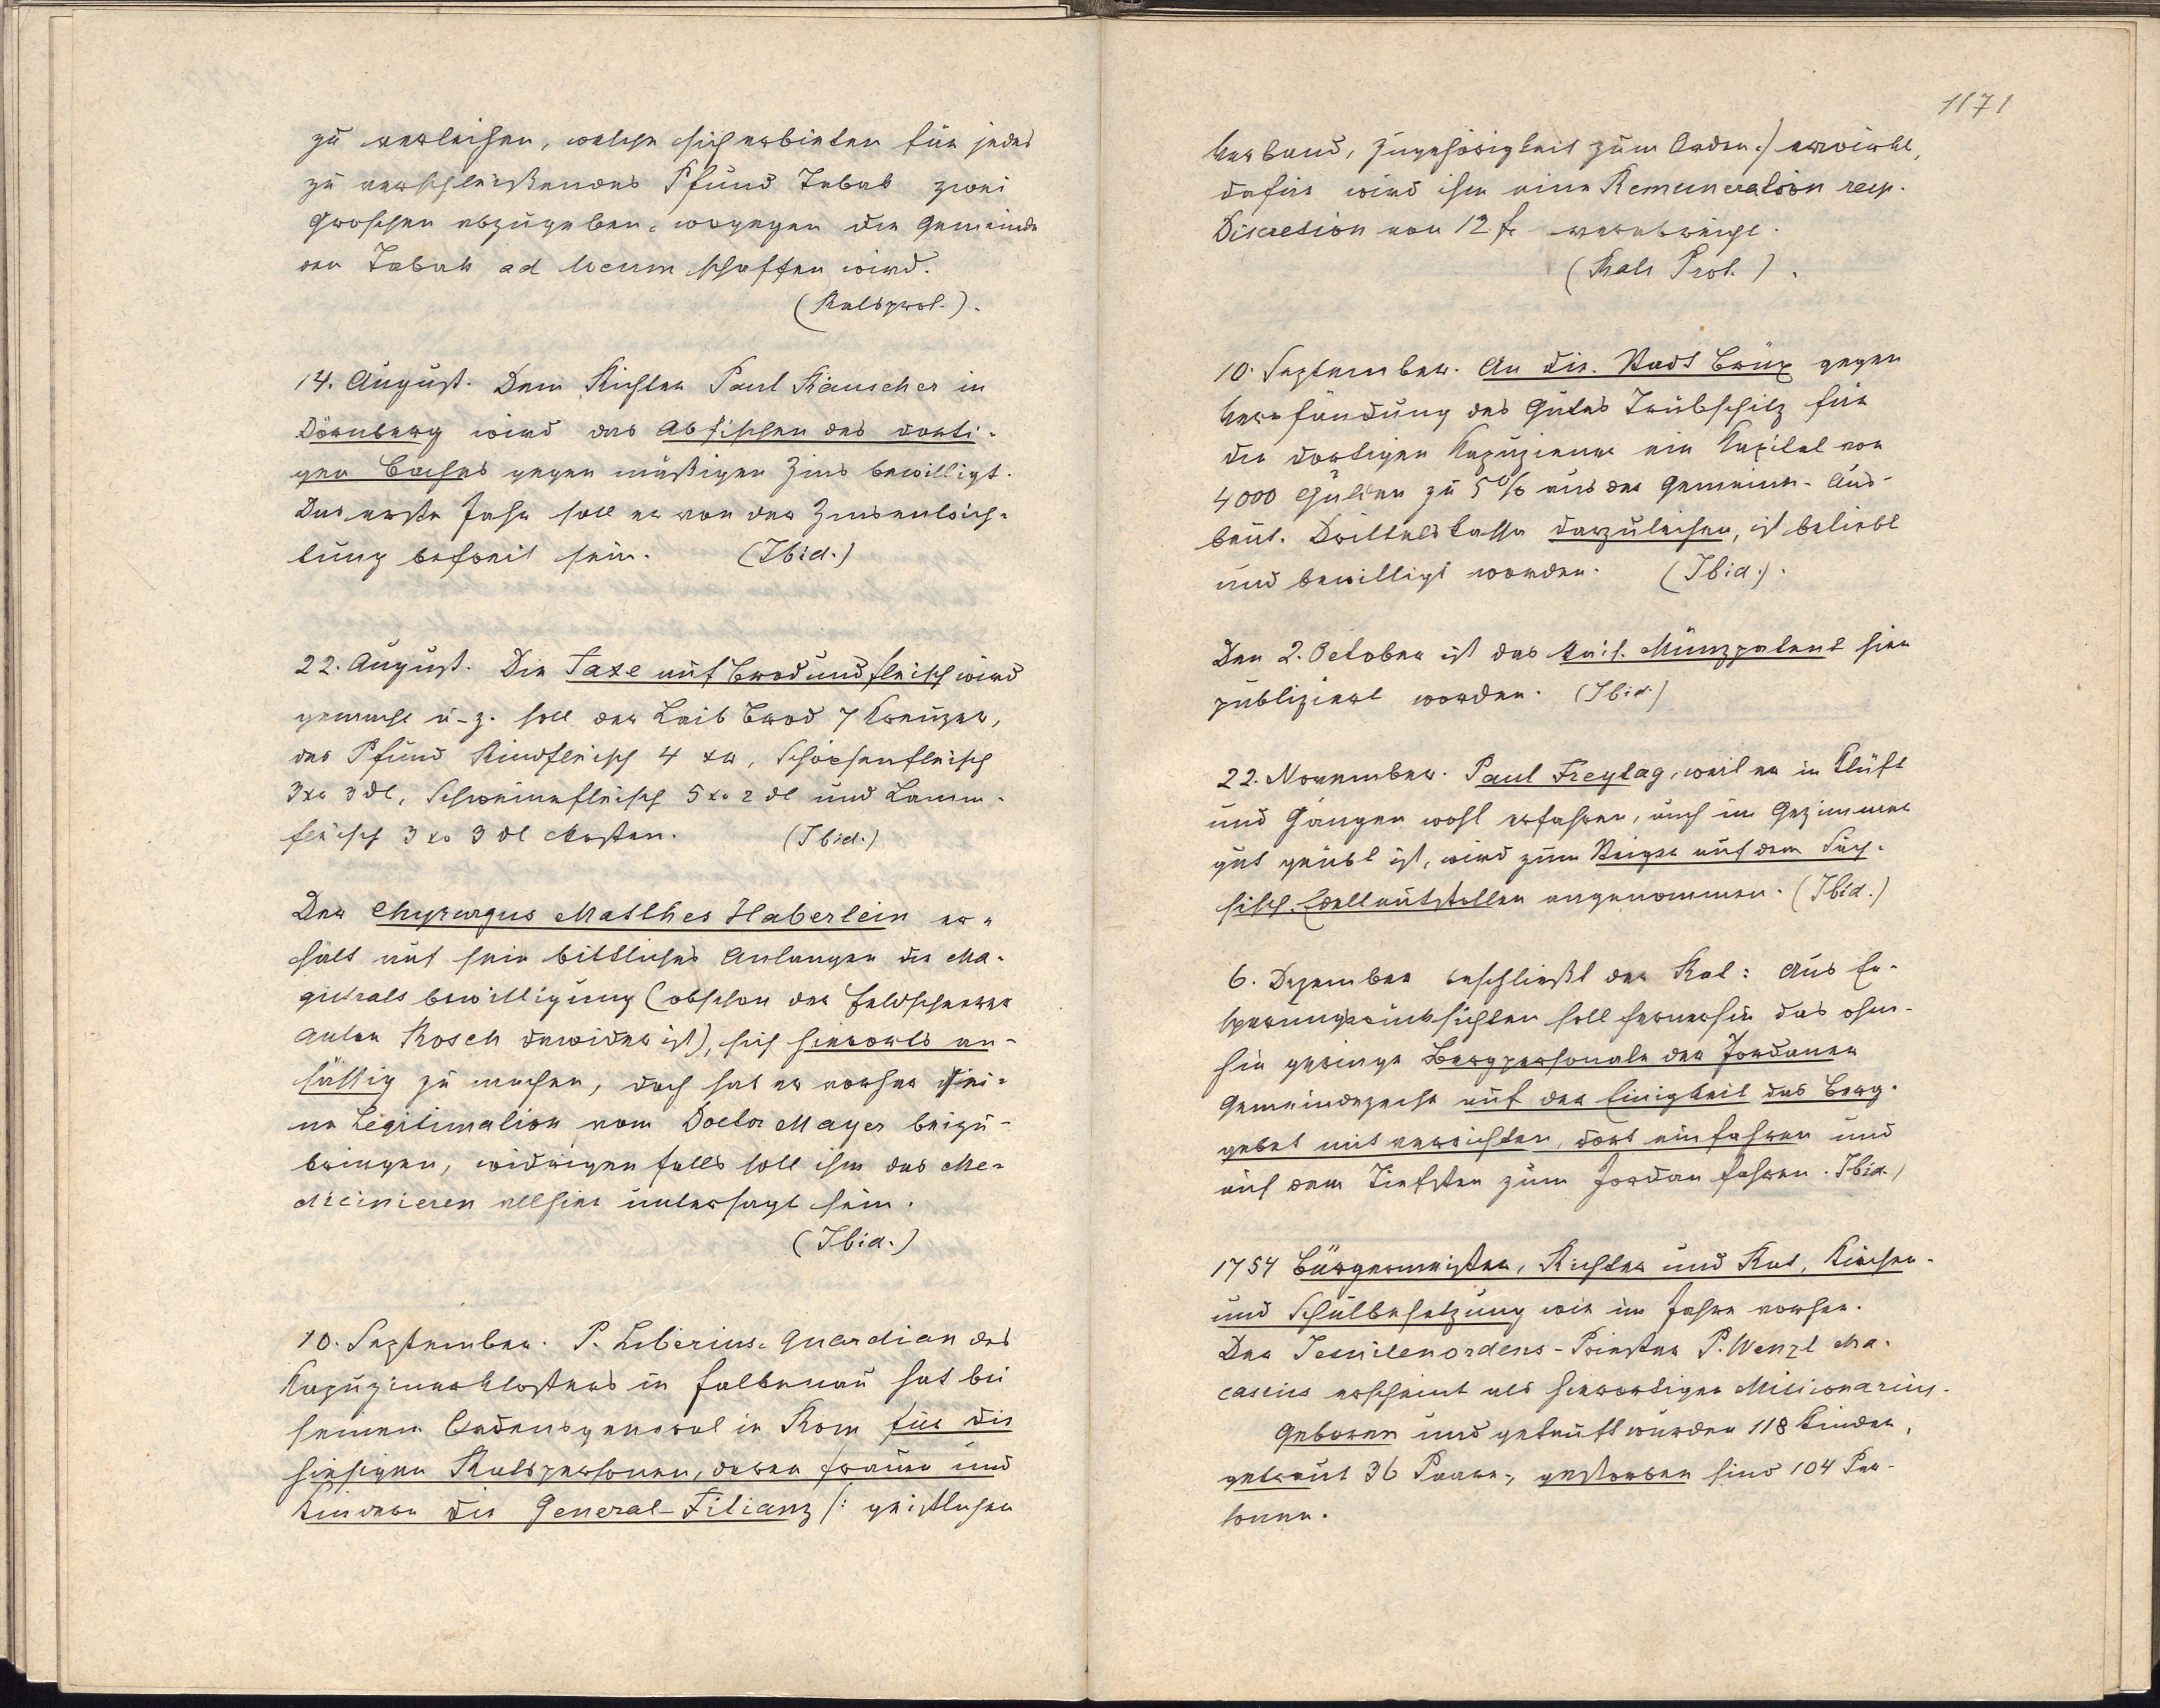 zu verleihen, welche sich erbieten für jedes
zu verschleißendes Pfund Tabak zwei
Groschen abzugeben, wogegen die Gemeinde
den Tabak ad locum schaffen wird.
(Ratsprot.).
14. August. Dem Richter Paul Rauscher in
Dörnberg wird das Abfischen des dorti-
gen Baches gegen mäßigen Zins bewilligt.
Das erste Jahr soll er von der Zinsentrich-
tung befreit sein. (Ibid.)
22. August. Die Taxe auf Brod und Fleisch wird
gemacht u. z. soll der Laib Brod 7 Kreuzer,
das Pfund Rindfleisch 4 xr, Schöpsenfleisch
3 xr 3 dl, Schweinefleisch 5 xr 2 dl und Lamm-
fleisch 3 xr 3 dl kosten. (Ibid.)
Der Chyrurgus Matthes Haberlein er-
hält auf sein bittliches Anlangen die Ma-
gistratsbewilligung (obschon der Feldscherer
Anton Rosch dawider ist), sich hierorts an-
sässig zu machen, doch hat er vorher sei-
ne Legitimation vom Doctor Mayer beizu-
bringen, widrigenfalls soll ihm das Me-
dicinieren allhier untersagt sein.
(Ibid.)
10. September. P. Liberius, Guardian des
Kapuzinerklosters in Falkenau hat bei
seinem Ordensgeneral in Rom für die
hiesigen Ratspersonen, deren Frauen und
Kindern die General-Filianz /: geistlichen
1171
Verband, Zugehörigkeit zum Orden :/ erwirkt,
dafür wird ihm eine Remuneration resp.
Discretion von 12 fr verabreicht.
(Rats Prot.).
10. September. An die Stadt Brüx gegen
Verpfändung des Gutes Trübschitz für
die dortigen Kapuziener ein Kapital von
4000 Gulden zu 5% aus der Gemeinen-Aus-
beut-Drittelskassa darzuleihen, ist beliebt
und bewilligt worden. (Ibid.).
Den 2. October ist das kais. Münzpatent hier
publiziert worden. (Ibid.)
22. November. Paul Freytag, weil er in Klüft
und Gängen wohl erfahren, auch im Gezimmer
gut geübt ist, wird zum Steiger auf dem Säch-
sisch. Edelleutstollen angenommen. (Ibid.)
6. Dezember beschließt der Rat: Aus Er-
sparungsrücksichten soll fernerhin das ohne-
hin geringe Bergpersonale der Jordaner
Gemeindezeche auf der Einigkeit das Berg-
gebet mit verrichten, dort einfahren und
auf dem Tiefsten zum Jordan fahren. Ibid.)
1754 Bürgermeister, Richter und Rat, Kirchen-
und Schulbesetzung wie im Jahre vorher.
Der Jesuitenordens-Priester P. Wenzl Ma-
casius erscheint als hierortiger Missionarius.
Geboren und getauft wurden 118 Kinder,
getraut 36 Paare, gestorben sind 104 Per-
sonen.